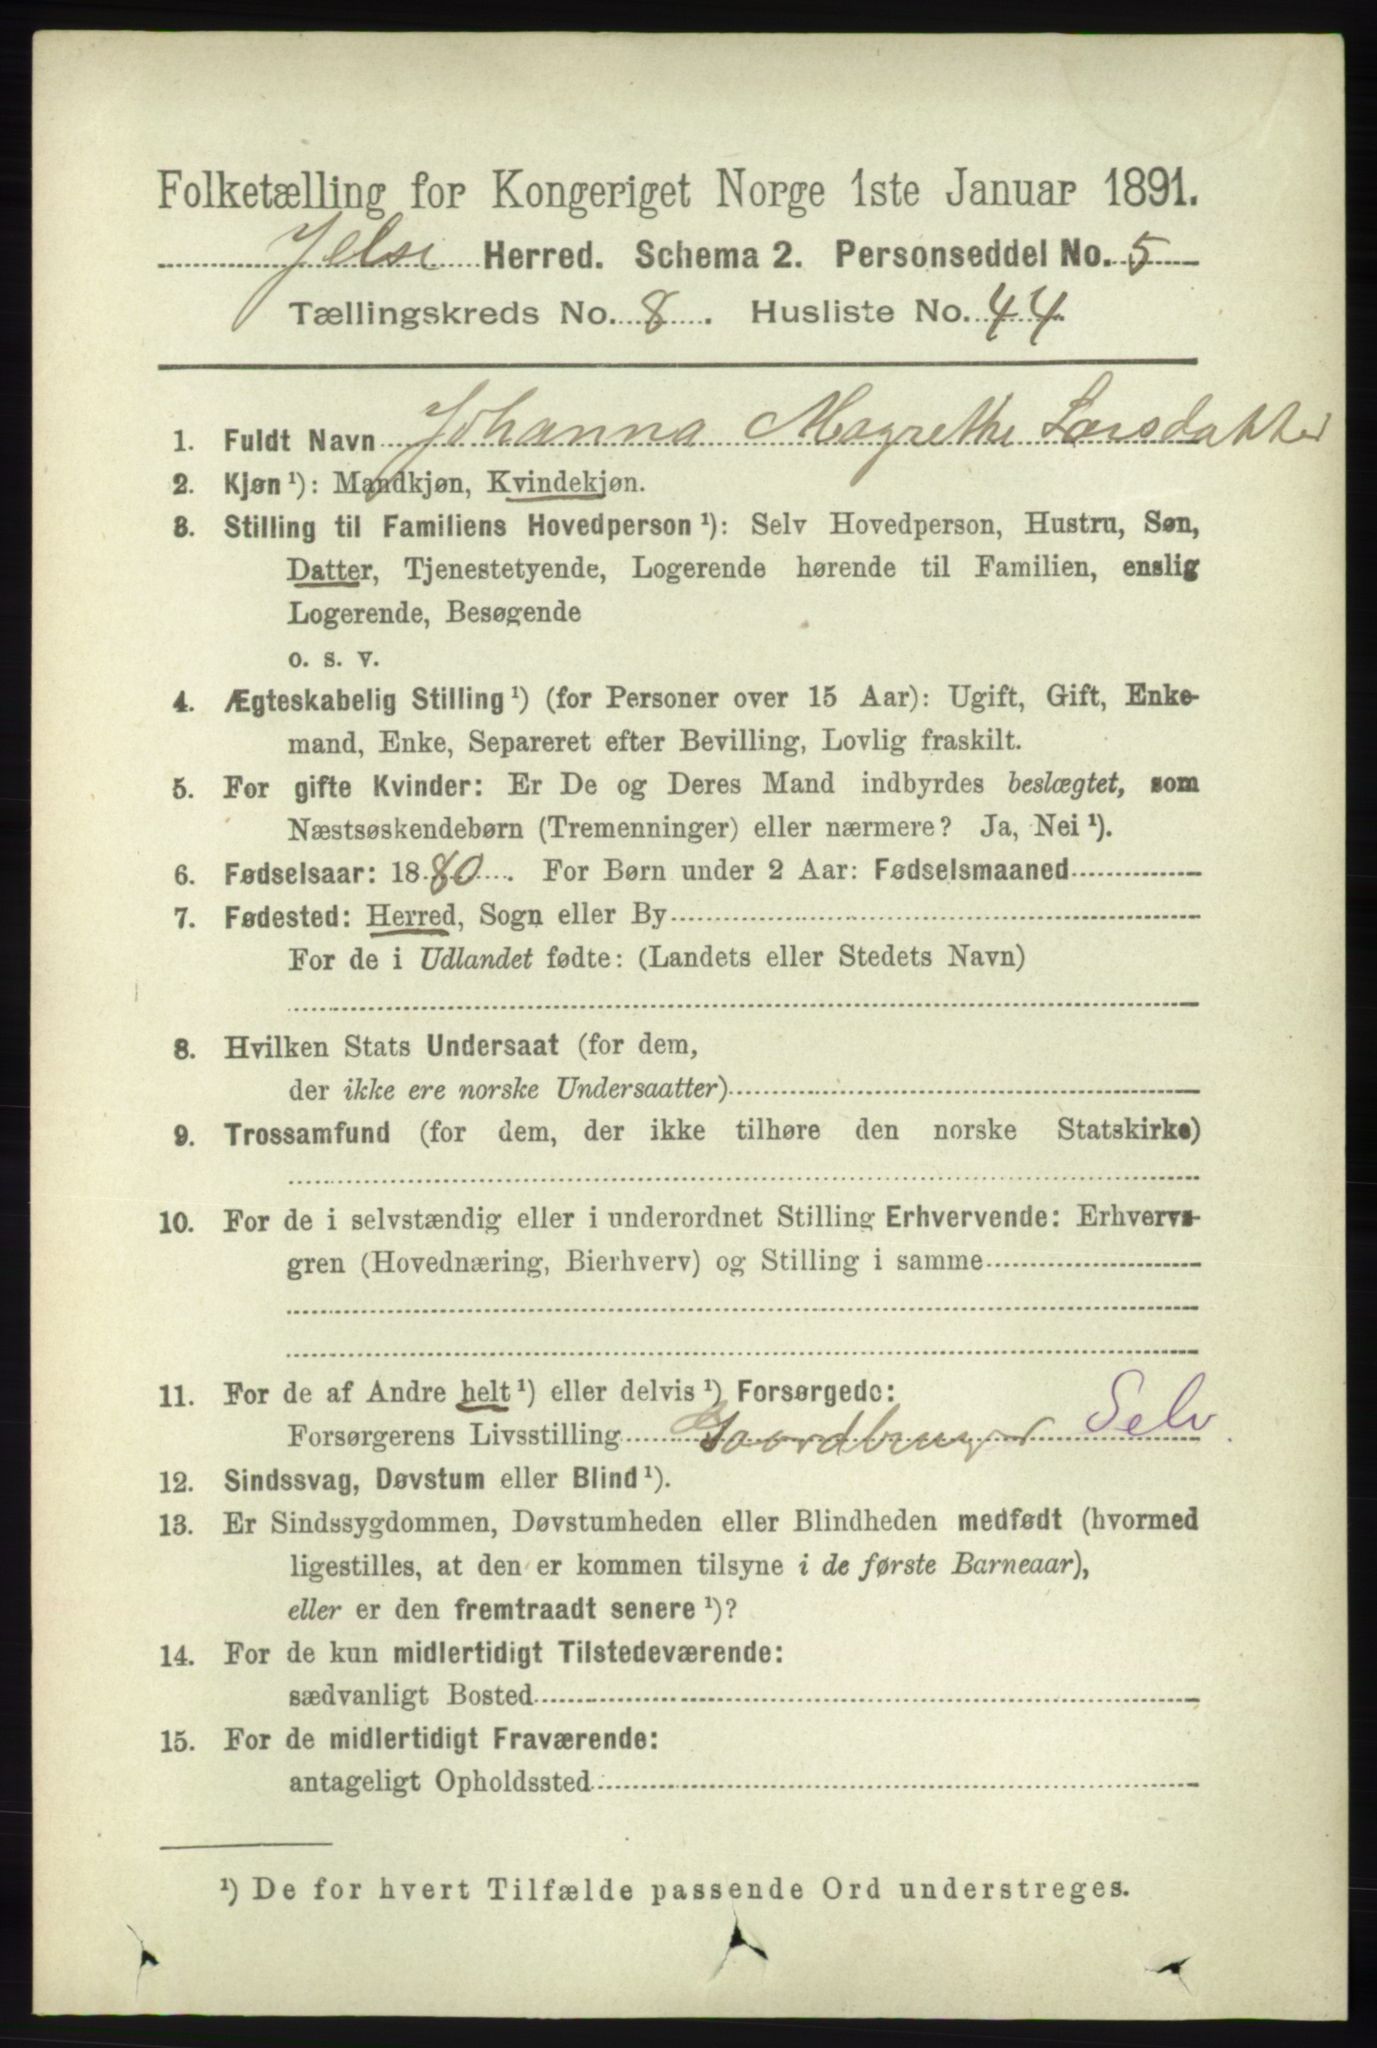 Folketælling for Kongeriget Norge 1ste Januar 1891.
Jelse Herred. Schema 2. Personseddel No. 5
Tællingskreds No. 8. Husliste No. 44.
1. Fuldt Navn Johanna Magrethe Larsdatter
2. Kjøn ¹): Mandkjøn, Kvindekjøn.
3. Stilling til Familiens Hovedperson ¹): Selv Hovedperson, Hustru, Søn,
Datter, Tjenestetyende, Logerende hørende til Familien, enslig
Logerende, Besøgende
o. s. v.
4. Ægteskabelig Stilling ¹) (for Personer over 15 Aar): Ugift, Gift, Enke-
mand, Enke, Separeret efter Bevilling, Lovlig fraskilt.
5. For gifte Kvinder: Er De og Deres Mand indbyrdes beslægtet, som
Næstsøskendebørn (Tremenninger) eller nærmere? Ja, Nei ¹).
6. Fødselsaar: 1880. For Børn under 2 Aar: Fødselsmaaned
7. Fødested: Herred, Sogn eller By
For de i Udlandet fødte: (Landets eller Stedets Navn)
8. Hvilken Stats Undersaat (for dem,
der ikke ere norske Undersaatter)
9. Trossamfund (for dem, der ikke tilhøre den norske Statskirke)
10. For de i selvstændig eller i underordnet Stilling Erhvervende: Erhvervs-
gren (Hovednæring, Bierhverv) og Stilling i samme
11. For de af Andre helt ¹) eller delvis ¹) Forsørgede:
Forsørgerens Livsstilling Gaardbruger Selv.
12. Sindssvag, Døvstum eller Blind ¹).
13. Er Sindssygdommen, Døvstumheden eller Blindheden medfødt (hvormed
ligestilles, at den er kommen tilsyne i de første Barneaar),
eller er den fremtraadt senere ¹)?
14. For de kun midlertidigt Tilstedeværende:
sædvanligt Bosted
15. For de midlertidigt Fraværende:
antageligt Opholdssted
¹) De for hvert Tilfælde passende Ord understreges.